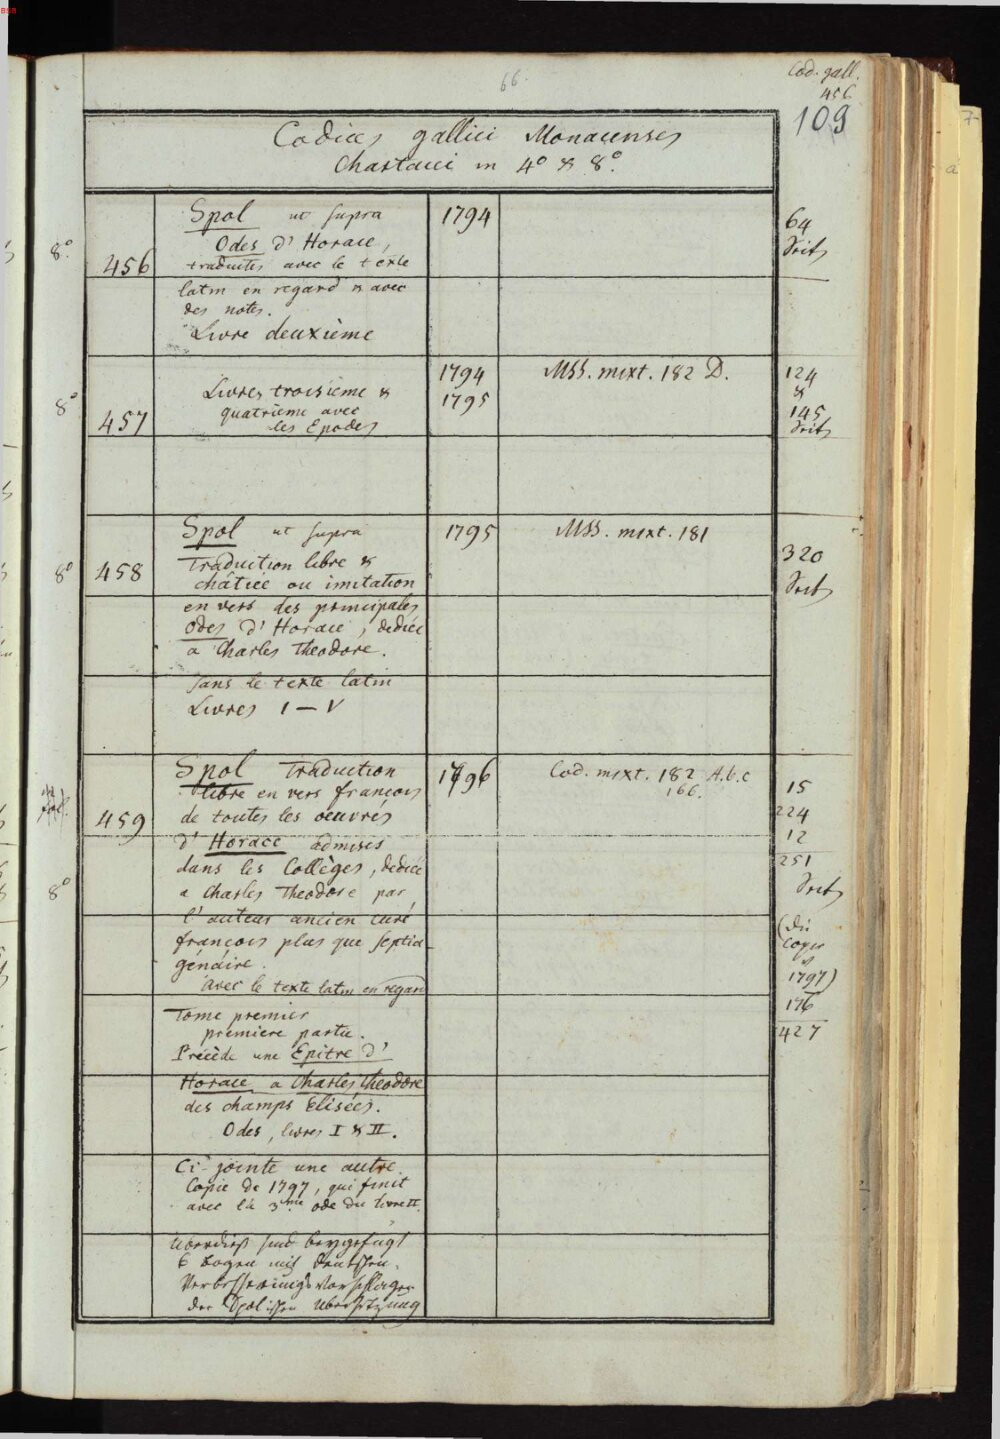 BSB
66.
Cod. gall.
456
109
Codices gallici Monacenses
Chartacei in 4° & 8°.
8° 456
Spol ut supra
Odes d'Horace,
traduites avec le texte
latin en regard & avec
des notes.
Livre deuxième
1794
64
Seit
8° 457
Livres troisieme &
quatrieme avec
les Epodes
1794
1795
MSS. mixt. 182 D.
124
&
145
Seit
8° 458
Spol ut supra
Traduction libre &
châtiée ou imitation
en vers des principales
Odes d'Horace, dediée
a Charles Theodore.
sans le texte latin
Livres I — V
1795
MSS. mixt. 181
320
Seit
in
fol.
459
8°
Spol Traduction
libre en vers françois
de toutes les oeuvrés
d'Horace admises
dans les Collèges, dediée
a Charles Theodore par
l'auteur ancien curé
françois plus que septua
génaire.
Avec le texte latin en regard
Tome premier
premiere partie.
Précède une Epitre d'
Horace a Charles Theodore
des champs Elisées.
Odes, livres I & II.
Ci-jointe une autre
Copie de 1797, qui finit
avec la 3me ode du livre II.
Uberdieß sind beygefügt
6 Bogen mit deutschen
Verbesserungs Vorschlägen
der Spolischen Ubersetzung
1796
Cod. mixt. 182 A.b.c
166.
15
224
12
251
Seit
(die
Copie
v
1797)
176
427